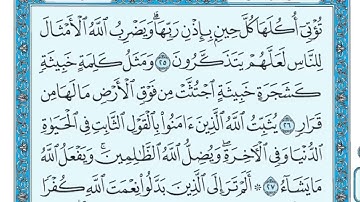 تُؤْتِىٓ أُكُلَهَا كُلَّ حِينٍۭ بِإِذْنِ رَبِّهَا ۗ وَيَضْرِبُ ٱللَّهُ ٱلْأَمْثَالَ
لِلنَّاسِ لَعَلَّهُمْ يَتَذَكَّرُونَ ٢٥ وَمَثَلُ كَلِمَةٍ خَبِيثَةٍ
كَشَجَرَةٍ خَبِيثَةٍ ٱجْتُثَّتْ مِن فَوْقِ ٱلْأَرْضِ مَا لَهَا مِن
قَرَارٍ ٢٦ يُثَبِّتُ ٱللَّهُ ٱلَّذِينَ ءَامَنُوا۟ بِٱلْقَوْلِ ٱلثَّابِتِ فِى ٱلْحَيَوٰةِ
ٱلدُّنْيَا وَفِى ٱلْءَاخِرَةِ ۖ وَيُضِلُّ ٱللَّهُ ٱلظَّٰلِمِينَ ۚ وَيَفْعَلُ ٱللَّهُ
مَا يَشَآءُ ٢٧ ۞ أَلَمْ تَرَ إِلَى ٱلَّذِينَ بَدَّلُوا۟ نِعْمَتَ ٱللَّهِ كُفْرًا